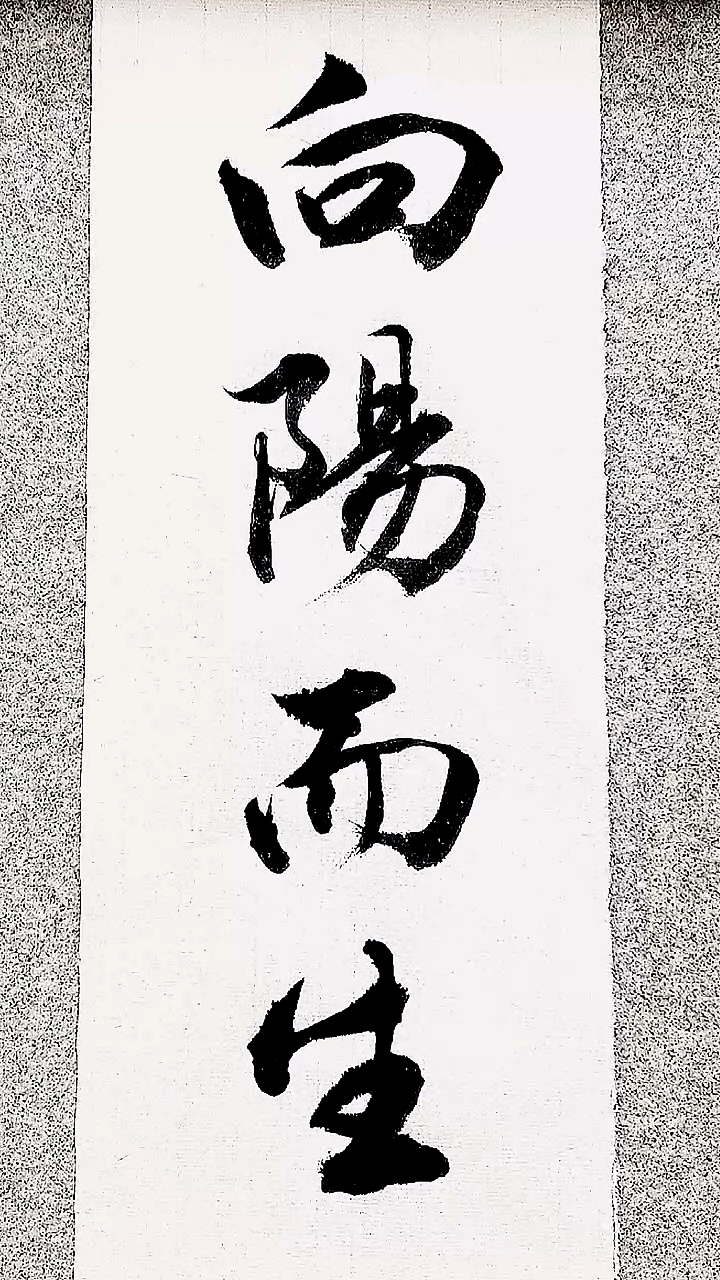 向陽而生